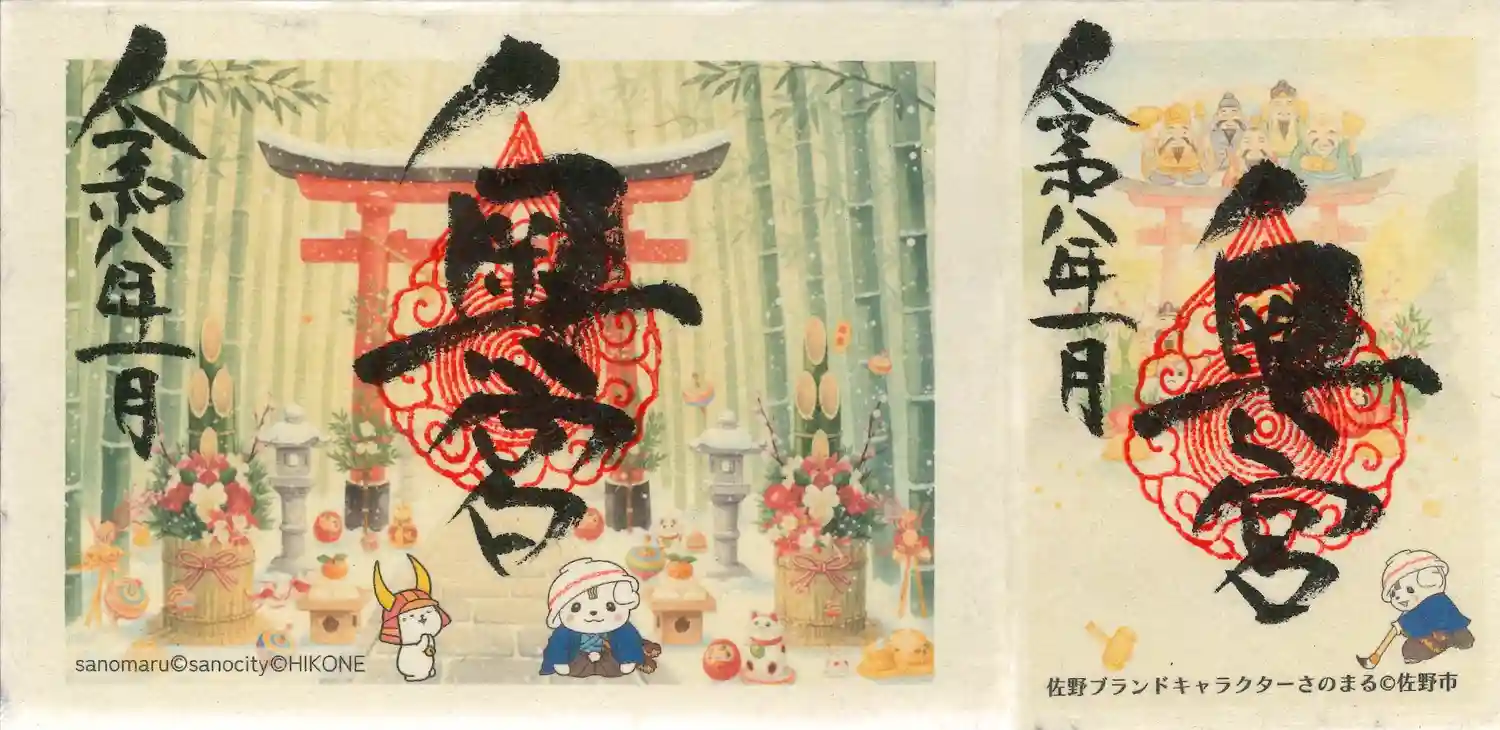 奥宮
令和八年一月
sanomaru©sanocity©HIKONE
奥宮
令和八年一月
佐野ブランドキャラクターさのまる©佐野市